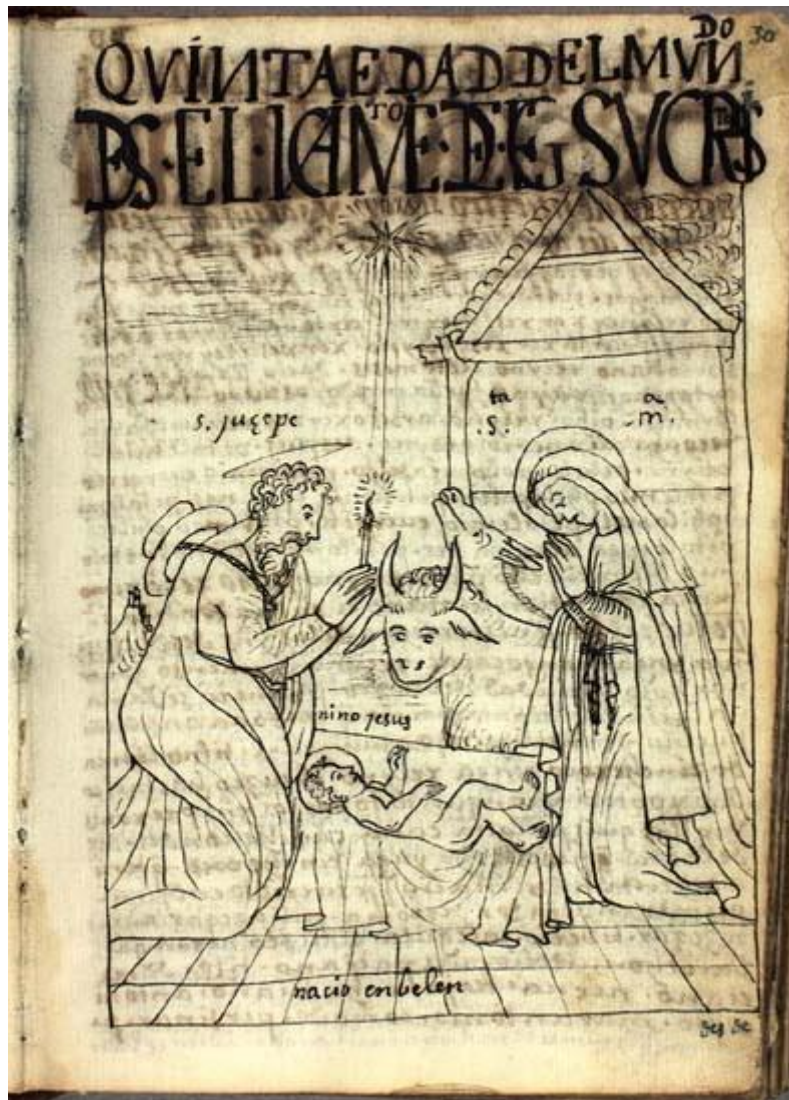 QVINTA EDAD DEL MVNDO
DSEL NACIMIENTO DE IESVCRISTO
30
s. juzepe
s.ta
m.a
nino jesus
nacio en belen
des de